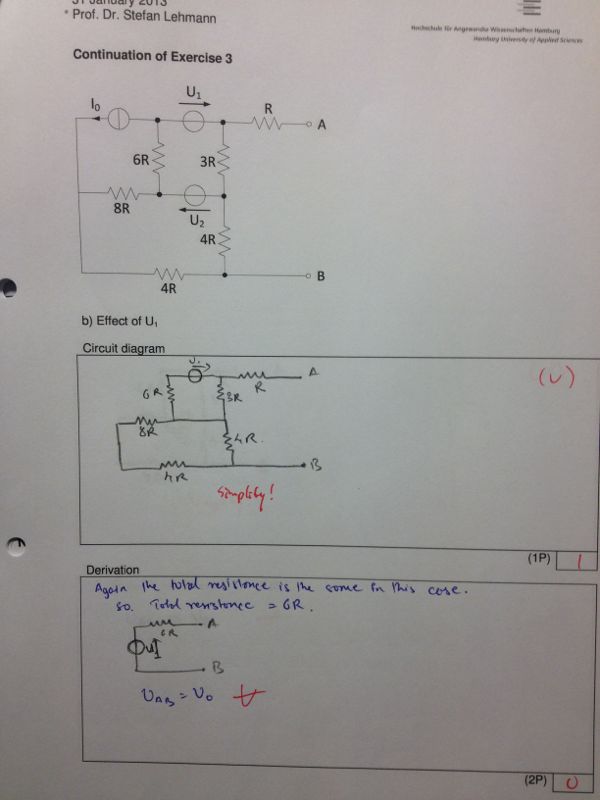 31 January 2013
* Prof. Dr. Stefan Lehmann
Hochschule für Angewandte Wissenschaften Hamburg
Hamburg University of Applied Sciences
Continuation of Exercise 3
U₁
I₀
R
A
6R
3R
8R
U₂
4R
B
4R
b) Effect of U₁
Circuit diagram
U₁
A
R
6R
3R
8R
4R.
B
4R
Simplify!
(1P) 1
Derivation
Again the total resistance is the same in this case.
so. Total resistance = 6R.
6R
A
U
B
U_AB = U₀
(2P) 0